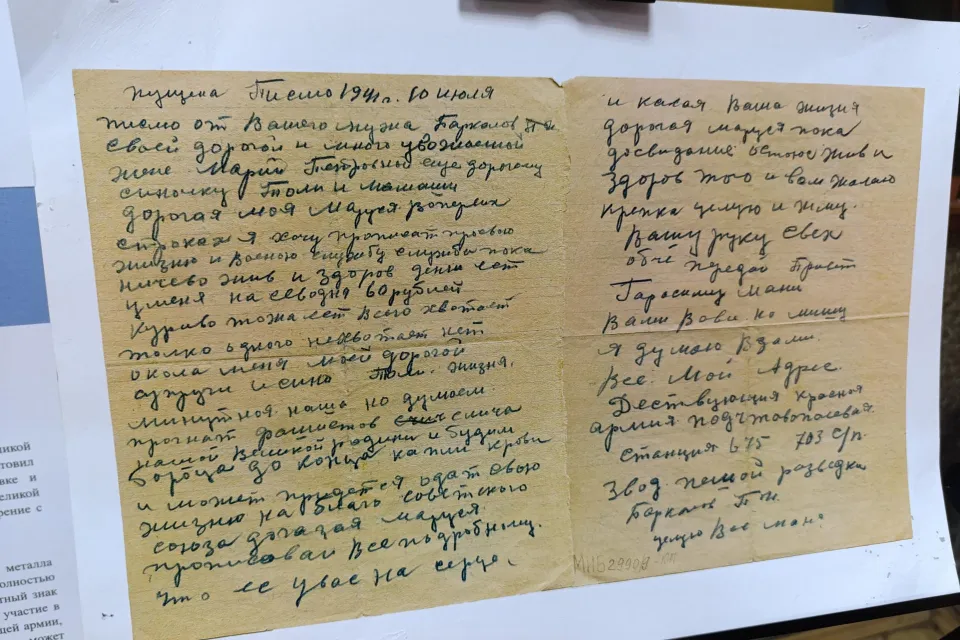 пущена Писмо 1941 г. 10 июля
писмо от Вашего мужа Баркалов П И
своей дорогой и много уважаемой
жене Марий Петровны еще дорогому
синочку Толи и мамаши
дорогая моя Маруся Воперых
строках я хочу прописат просвою
жизню и Военою службу служба пока
ничево жив и здоров денги ест
уменя на севодня 60 рублей
Куриво тожа ест Всего хватает
толко одного нехватает нет
окола меня моей дорогой
супруги и сино Толи. жизня.
минутная наша но думаем
прогнат фашистов слица
нашой Великой родини и будим
бороца до конца капли крови
и может придется одат свою
жизню на благо советского
союза дорагая маруся
прописоваи Все подробному.
что ест увас на серце,
и какая Ваша жизня
дорогая маруся пока
досвидание остаюс жив и
здоров того и вам жалаю
крепка целую и жму.
Вашу руку Свем
обче передай Привет
Гарасиму Мани
Вали Вови но мишу
я думаю Взали.
Все. Мой Адрес.
Дествующия красная
армия подчтовополевая
станция 675 703 с/п.
Звод пешой разведки
Баркалов П И.
целую Вас
МПБ 29908
ликой
товил
вке и
еликой
рение с
металла
олностью
тный знак
участие в
щей армии,
может